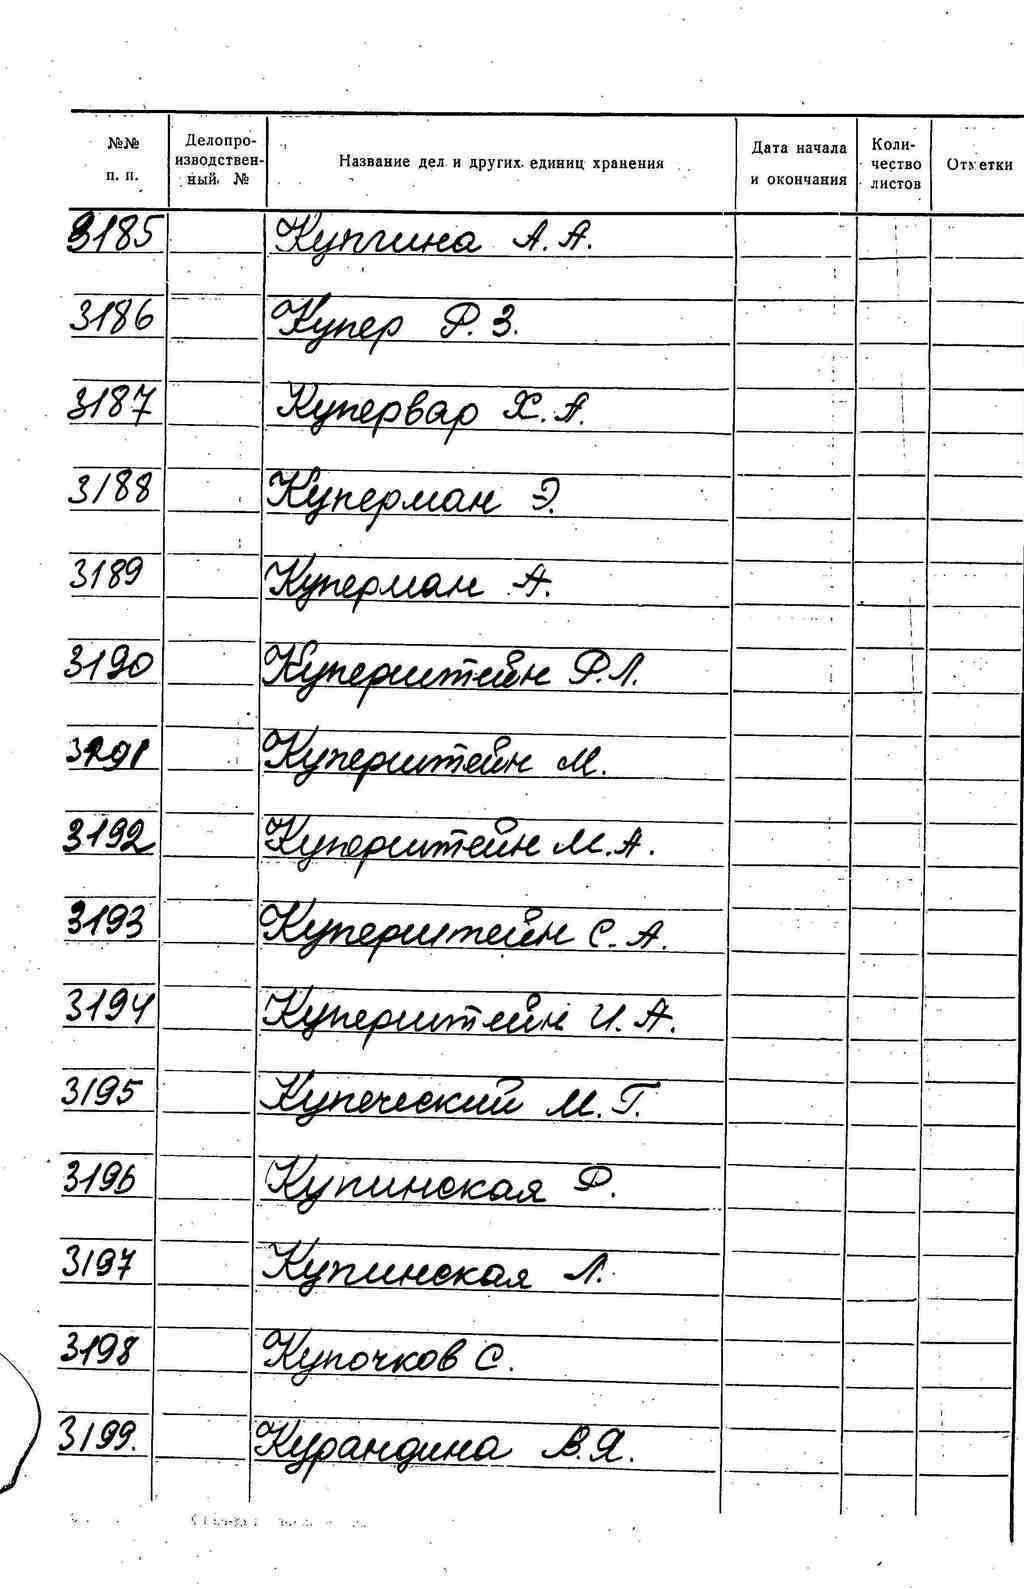 №№ п. п. Делопро-изводствен-ный № Название дел и других единиц хранения Дата начала и окончания Коли-чество листов Отметки
3185 Купгина А. А.
3186 Купер Р. З.
3187 Купервар Х. А.
3188 Куперман Э.
3189 Куперман А.
3190 Куперштейн Р. Л.
3191 Куперштейн М.
3192 Куперштейн М. А.
3193 Куперштейн С. А.
3194 Куперштейн И. А.
3195 Купеческий М. Г.
3196 Купинская Р.
3197 Купинская Л.
3198 Купочков С.
3199. Курандина В. Я.